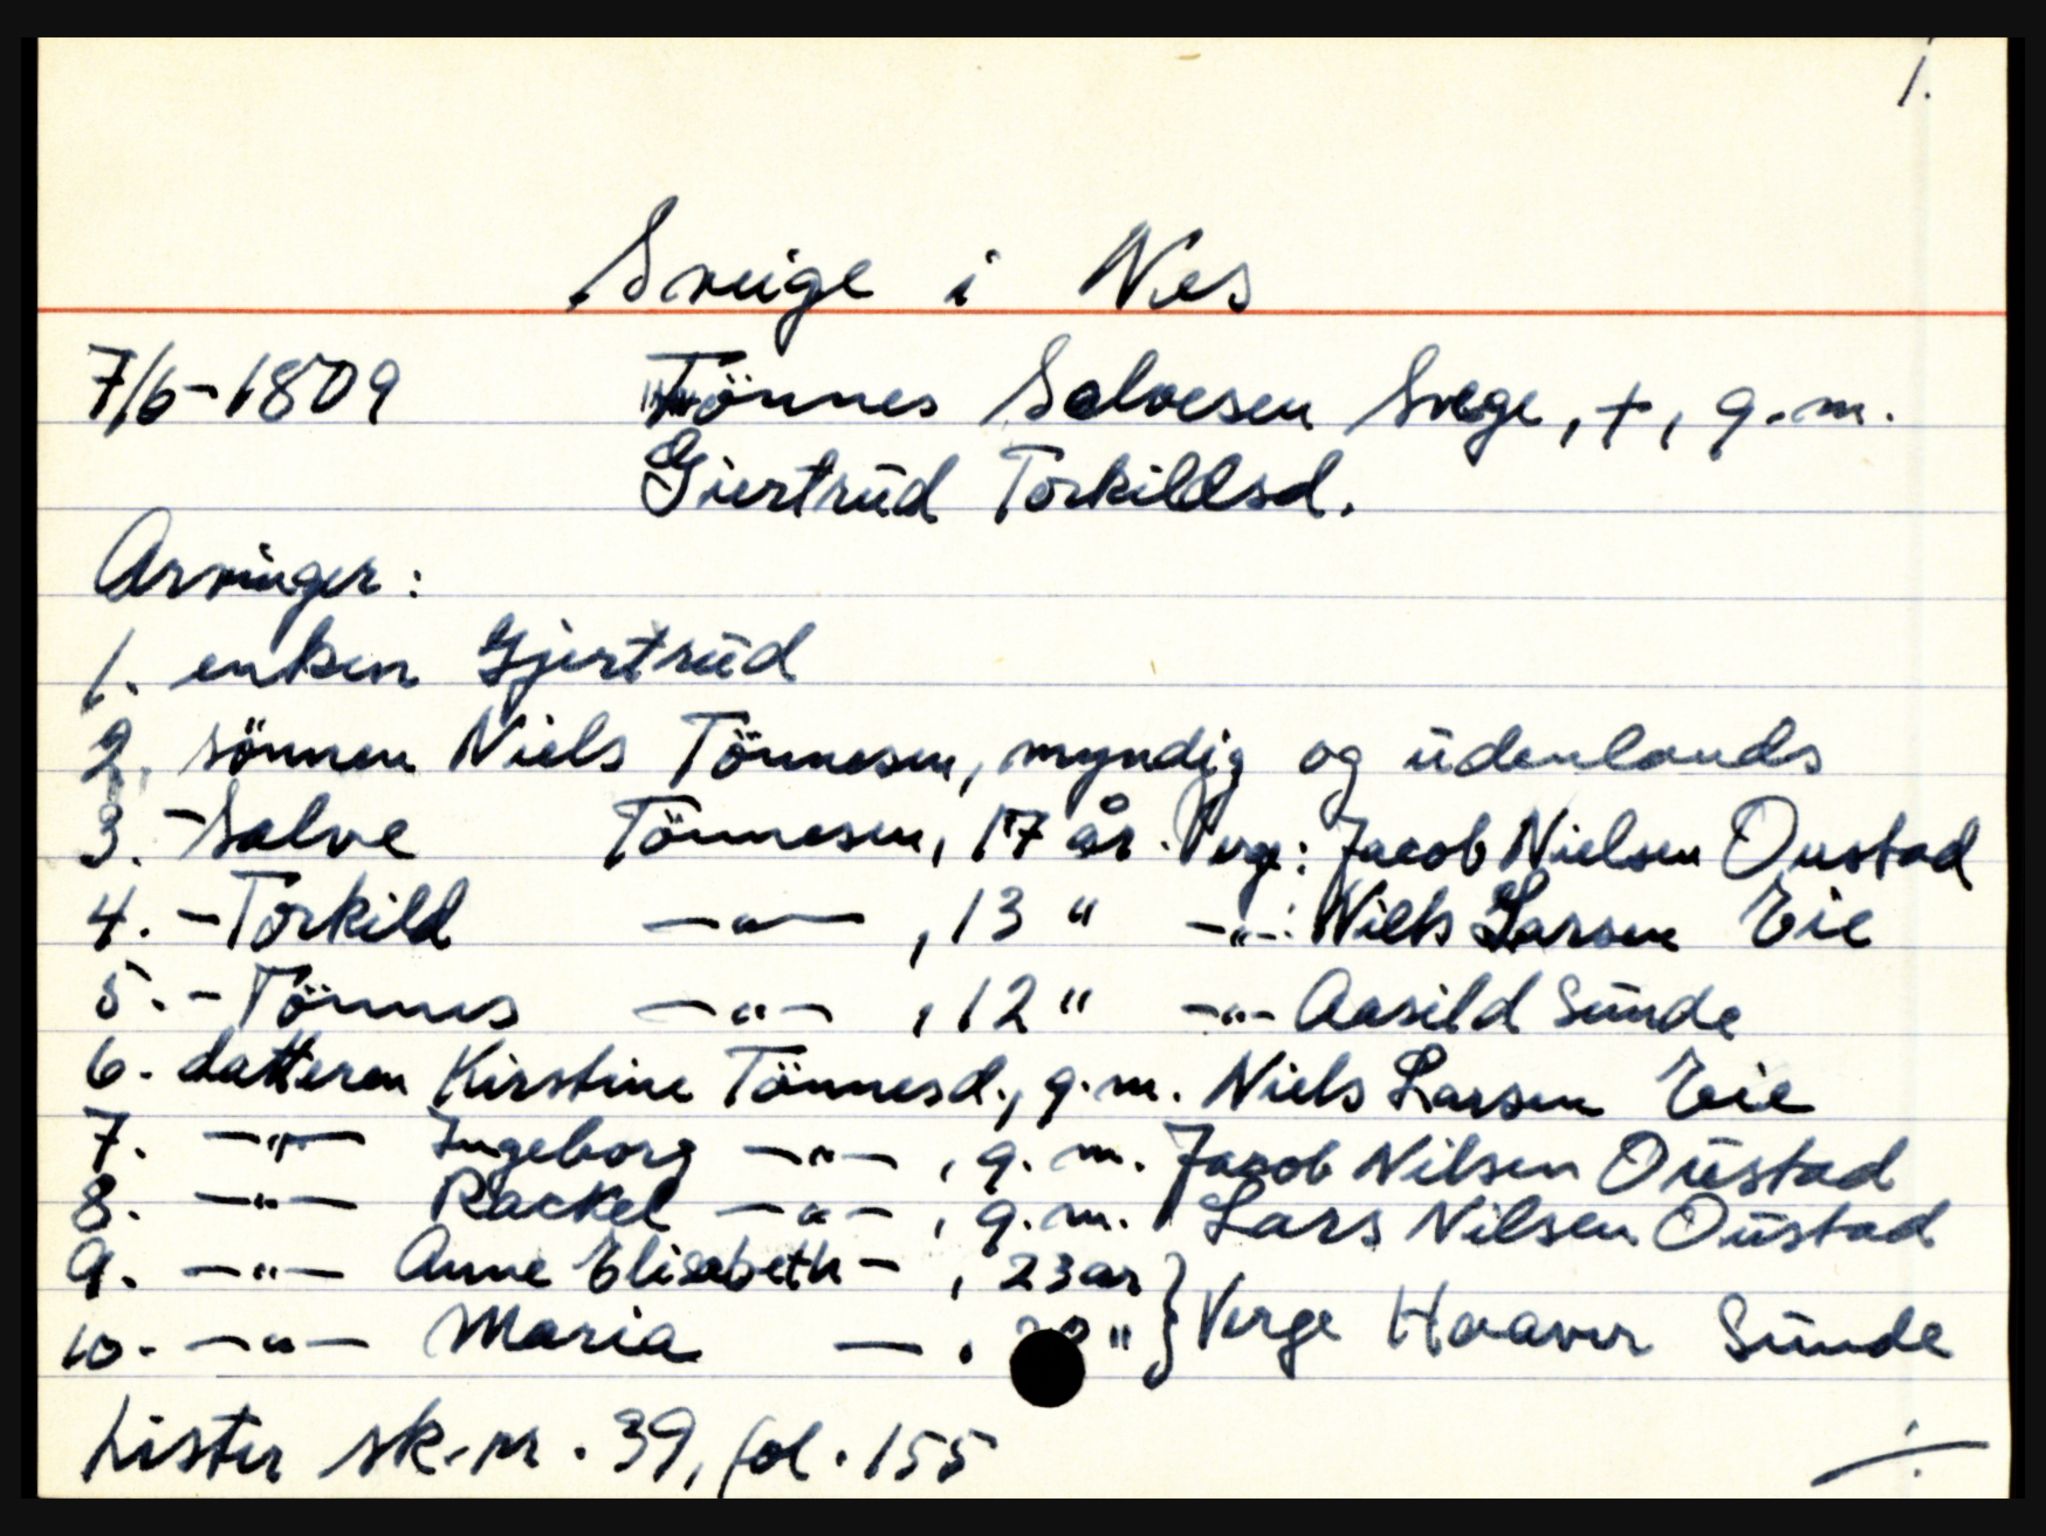 1.
Sveige i Nes
7/6-1809 Tönnes Salvesen Svege, †, g.m.
Giertrūd Torkildsd.
Arvinger:
1. enken Gjertrūd
2. sönnen Niels Tönnesen, myndig og ūdenlands
3. - Salve Tönnesen, 17 år. Verge: Jacob Nielsen Oustad
4. - Torkild —"— , 13 " —"—: Niels Larsen Eie
5. - Tönnes —"— , 12 " —"— Aasild Sūnde
6. datteren Kirstine Tönnesd., g.m. Niels Larsen Eie
7. —"— Ingeborg —"— , g.m. Jacob Nilsen Oūstad
8. —"— Rackel —"— , g.m. Lars Nilsen Oūstad
9. —"— Anne Elisabeth — , 23 år } Verge Haaver Sūnde
10. —"— Maria — , " }
Lister sk.nr. 39, fol. 155 ./.